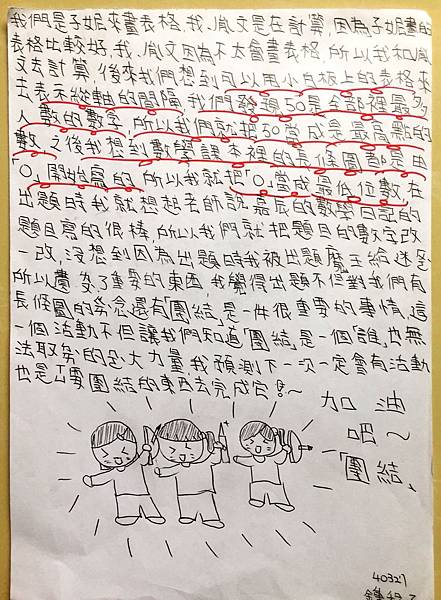 我們是子妮來畫表格,我、胤文是在計算,因為子妮畫的
表格比較好,我、胤文因為不太會畫表格,所以我和胤
文去計算,後來我們想到可以用小白板上的表格來
去表示縱軸的間隔,我們發現50是全部裡最多
人數的數字,所以我們就把50當成是最高點的
數,之後我想到數學課本裡的長條圖都是由
「0」開始寫的,所以我就把「0」當成最低位數,在
出題時我就想起老師說嘉辰的數學日記的
題目寫的很棒,所以我們就把題目的數字改
一改,沒想到因為出題時我被出題魔王給迷
所以 了重要的東西,我覺得出題不但對我們有
長條圖的 念還有「團結」是一件很重要的事情,這
一個活動不但讓我們知道「團結」是一個「誰」也無
法取 的 大力量,我預測下一次一定會有活動
也是需要團結的東西去完成它!~
加油
吧~
「團結」
40327